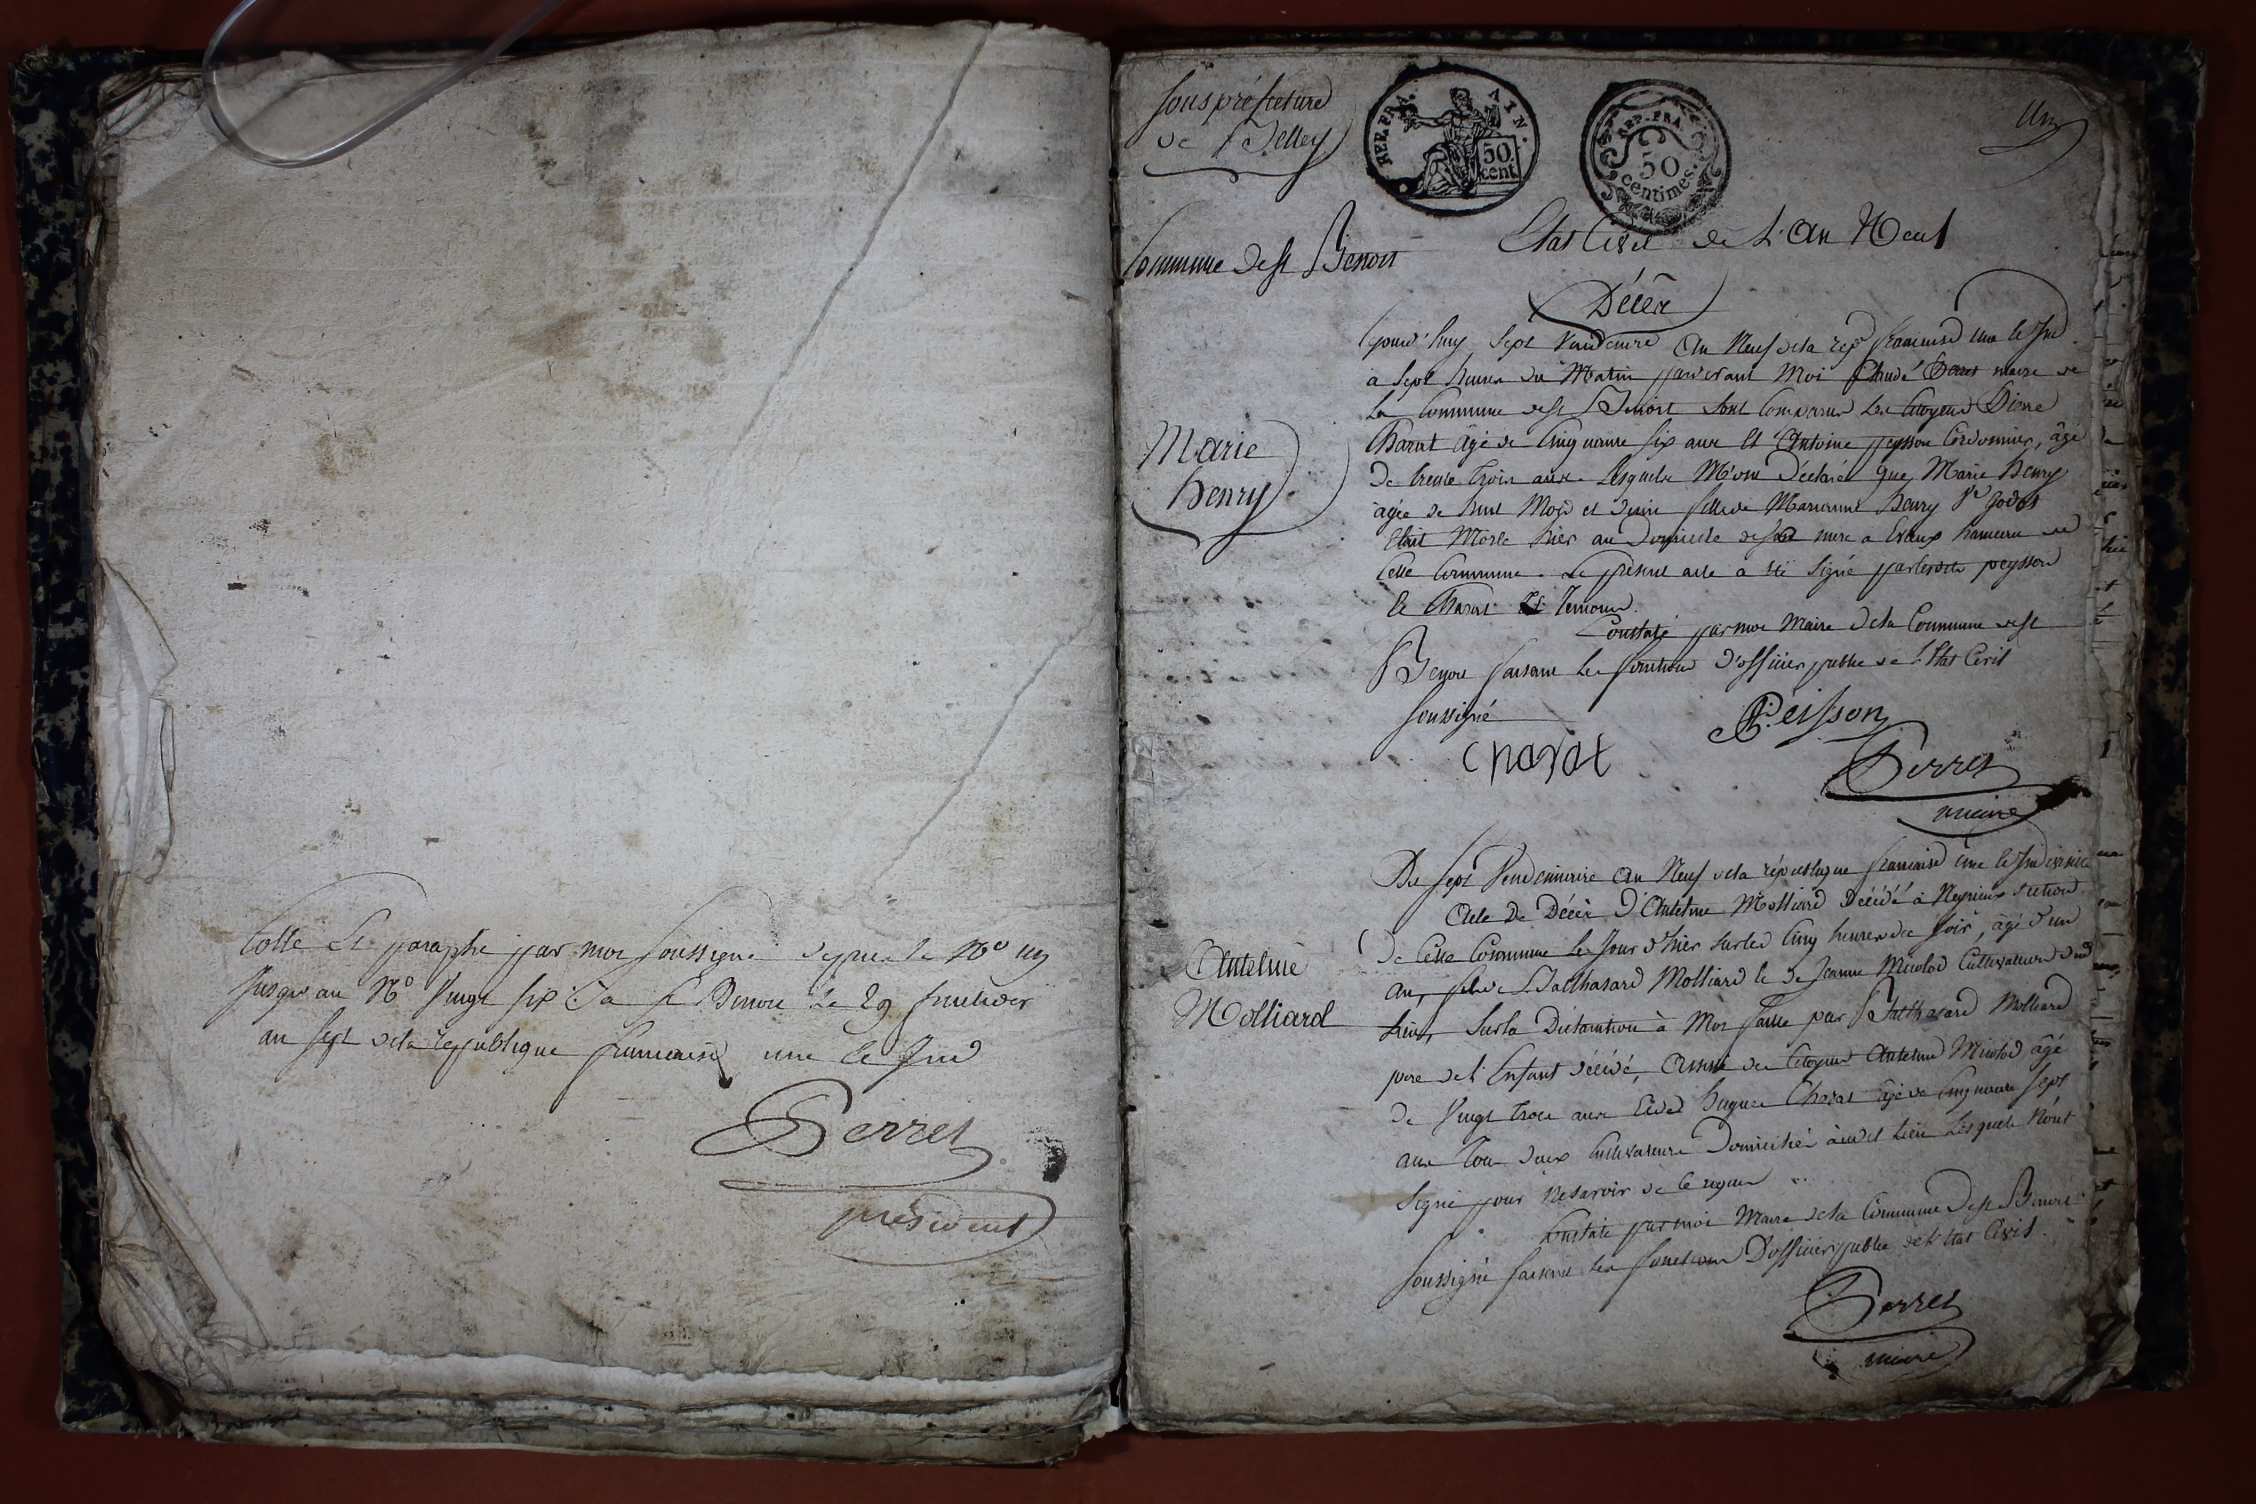 Cotté et paraphé par moi soussigné depuis le No un
jusqu'au No Vingt six. à St Benoit le 29 fructidor
an sept de la république francaise une et Ind
Perret
président
sous préfecture
de Belley
REP. FRA.
AIN.
50
cent
REP. FRA.
50
centimes.
Un
Commune de St Benoit
Etat Civil de L'an Neuf
Décès
Marie
henry
jourd'huy sept Vendemre an Neuf de la repe francaise une et Ind
a sept heures du Matin pardevant Moi Claude Perret maire de
la Commune de St Benoit sont Comparus les Citoyens
Charat âgé de Cinquante six ans et Antoine peysson Cordonnier, âgé
de trente trois ans. Lesquels M'ont Déclaré que Marie henry
agée de huit Mois et demi fille de Marianne henry Ve godet
Etait Morte hier au Domicile de sad mere a Evieux hameau de
Cette Commune. Le présent acte a été signé par lesdits peysson
et Charat Temoins.
Constaté par moi Maire de la Commune de St
Benoit faisant les fonctions d'officier public de l'Etat Civil
soussigné
Charat
Peisson
Perret
maire
Antelme
Molliard
Du sept Vendemiaire an Neuf de la république francaise une et Indivisible
Acte De Décès D'Antelme Molliard Décédé à Neyrieux section
de Cette Commune le Jour d'hier sur les Cinq heures du soir, âgé d'un
an, fils de Balthasard Molliard et de Jeanne Miolod Cultivateurs dud
lieu, sur la Déclaration à Moi faitte par Balthasard Molliard
pere de l'Enfant décédé, assisté des Citoyens Antelme Miolod âgé
de Vingt trois ans et de hugues Charat âgé de Cinquante sept
ans Tous deux Cultivateurs Domiciliés audit lieu Lesquels N'ont
signé pour Ne savoir de ce requis
Constaté par moi Maire de la Commune De St Benoit
soussigné faisant les fonctions D'officier public de l'Etat Civil.
Perret
maire